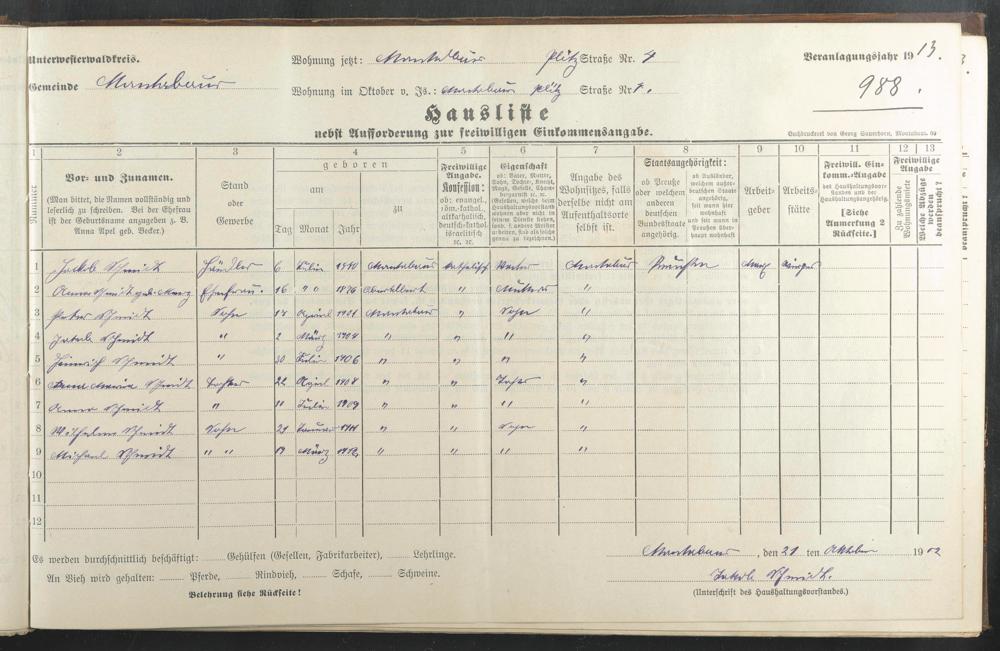 Unterwesterwaldkreis.
Wohnung jetzt: Montabaur Plötz Straße Nr. 4
Veranlagungsjahr 1913.
Gemeinde Montabaur
Wohnung im Oktober v. Js.: Montabaur Plötz Straße Nr.
988.
Hausliste
nebst Aufforderung zur freiwilligen Einkommensangabe.
Buchdruckerei von Georg Sauerborn, Montabaur.
1 2 3 4 5 6 7 8 9 10 11 12 13
Nummer
Vor- und Zunamen.
(Man bittet, die Namen vollständig und
leserlich zu schreiben. Bei der Ehefrau
ist der Geburtsname anzugeben z. B.
Anna Apel geb. Becker.)
Stand
oder
Gewerbe
geboren
am
zu
Tag Monat Jahr
Freiwillige
Angabe.
Konfession:
ob: evangel.,
röm.-kathol.,
altkatholisch,
deutsch-kathol.
israelitisch
ec. ec.
Eigenschaft
Angabe des
Wohnsitzes, falls
derselbe nicht am
Aufenthaltsorte
selbst ist.
Staatsangehörigkeit:
ob Preuße
oder welchen
anderen
deutschen
Bundesstaate
angehörig.
ob Ausländer,
welchem außer-
deutschen Staate
angehörig,
seit wann hier
wohnhaft
und seit wann in
Preußen über-
haupt wohnhaft
Arbeit-
geber
Arbeits-
stätte
Freiwill. Ein-
komm.-Angabe
der Haushaltungsvor-
standes und der
Haushaltungsangehörig.
[Siehe
Anmerkung 2
Rückseite.]
Freiwillige
Angabe
Zu zahlende
Wohnungsmiete
Welche Abzüge
werden
beansprucht?
1 Jakob Schmidt Händler 6 Montabaur katholisch Vater Montabaur Preußen
2 Anna Schmidt geb. Ehefrau. 16 " " 1876 " Mutter "
3 Peter Schmidt Sohn April 1901 Montabaur " Sohn "
4 Jakob Schmidt " 2 März 1904 " " " "
5 Heinrich Schmidt " 30 1906 " " " "
6 Anna Maria Schmidt Tochter 22 April 1908 " " Tochter "
7 Anna Schmidt " 11 1909 " " " "
8 Wilhelm Schmidt Sohn Januar 1911 " " Sohn "
9 Michael Schmidt " " 19 März 1912 " " " "
10
11
12
Es werden durchschnittlich beschäftigt: Gehülfen (Gesellen, Fabrikarbeiter), Lehrlinge.
Montabaur, den 21 ten Oktober 1902
An Vieh wird gehalten: Pferde, Rindvieh, Schafe, Schweine.
Jakob Schmidt.
Belehrung siehe Rückseite!
(Unterschrift des Haushaltungsvorstandes.)